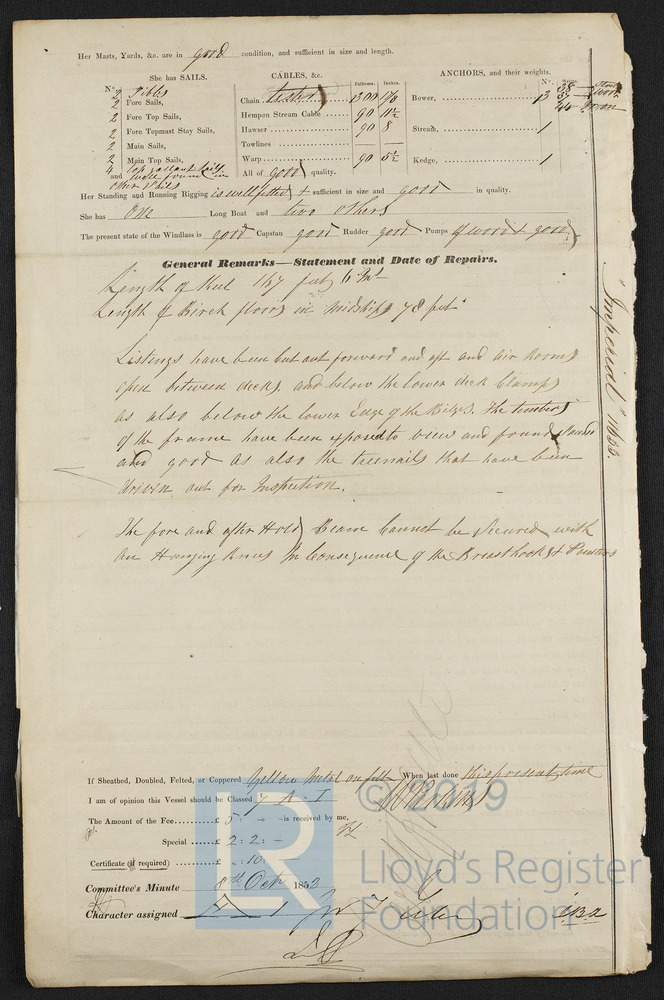 Her Masts, Yards, &c. are in good condition, and sufficient in size and length.
She has SAILS.
CABLES, &c.
ANCHORS, and their weights.
Nos.
Fathoms. Inches.
2 Jibbs
2 Fore Sails,
2 Fore Top Sails,
2 Fore Topmast Stay Sails,
2 Main Sails,
2 Main Top Sails,
4 top gallant sails
and well found in
other sails
Chain tested 300 1 7/8
Hempen Stream Cable 90 11½
Hawser 90 8
Towlines
Warp 90 5½
All of good quality.
Bower, 3
Stream, 1
Kedge, 1
Her Standing and Running Rigging is well fitted & sufficient in size and good in quality.
She has One Long Boat and two others
The present state of the Windlass is good Capstan good Rudder good Pumps of wood & good
General Remarks—Statement and Date of Repairs.
Length of Keel 167 feet 6 In
Length of Birch floors in Midships 78 feet
"Imperial" 11833.
Listings have been cut out forward and aft and air Rooms
open between decks, and below the lower deck Clamps
as also below the lower Edge of the Bilges. The timbers
of the frame have been exposed to view and found sound
and good as also the treenails that have been
driven out for Inspection.
The fore and after Hold Beam Cannot be secured with
an Hanging Knees In Consequence of the Breasthooks & Pointers
If Sheathed, Doubled, Felted, or Coppered Yellow Metal on felt When last done This present time
I am of opinion this Vessel should be Classed 7 A 1
The Amount of the Fee......£ 5 : - : - is received by me,
Special ......£ 2 : 2 : -
Certificate (if required) ......£ - : 10 :
Committee's Minute 8th Octr 1853
Character assigned A 1
© 2019
LR
Lloyd's Register
Foundation